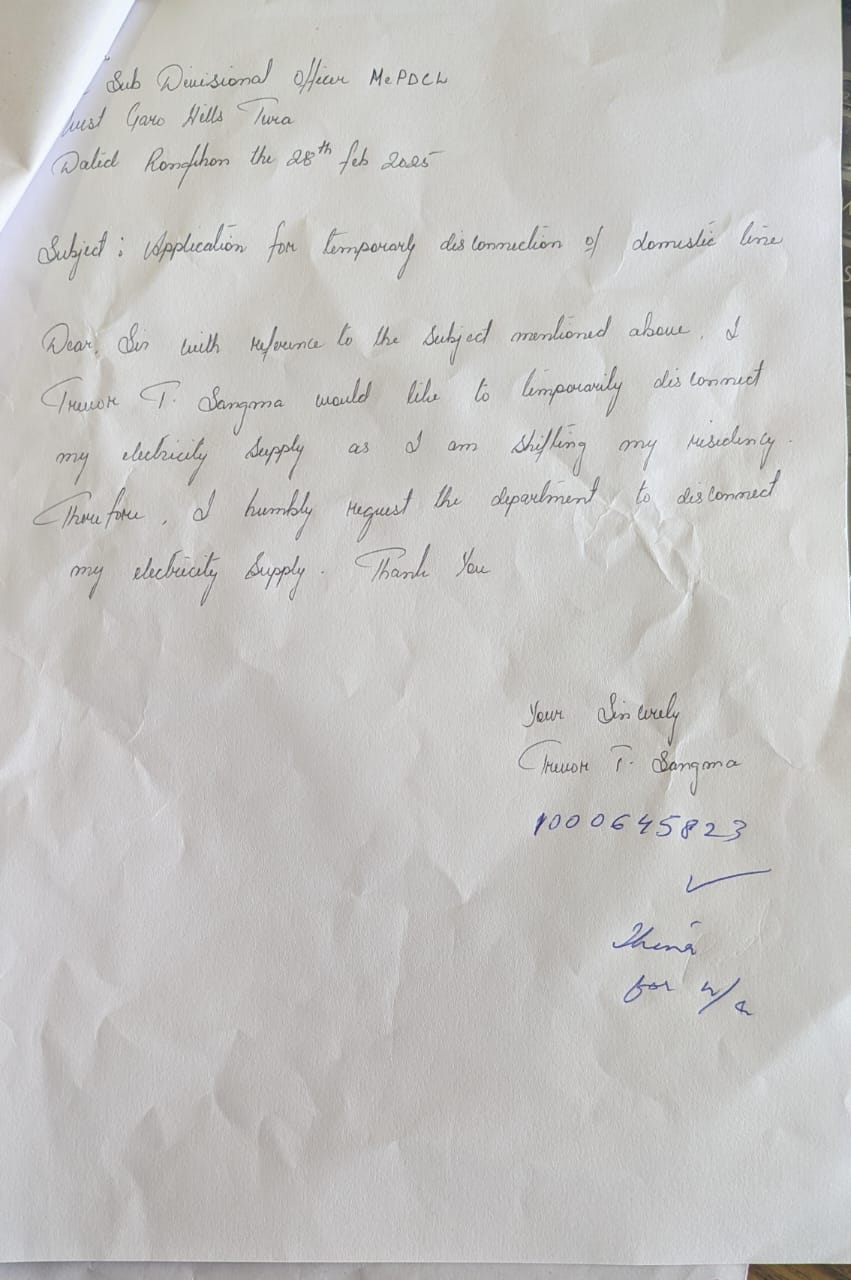 Sub Divisional Officer MePDCL
West Garo Hills Tura
Dated Rongkhon the 28th feb 2025
Subject : Application for temporarly disconnection of domestic line
Dear, Sir with reference to the subject mentioned above, I
Trevor T. Sangma would like to temporarily disconnect
my electricity supply as I am shifting my residency.
Therefore, I humbly request the department to disconnect
my electricity supply. Thank You
Your Sincerely
Trevor T. Sangma
1000645823
for n/a